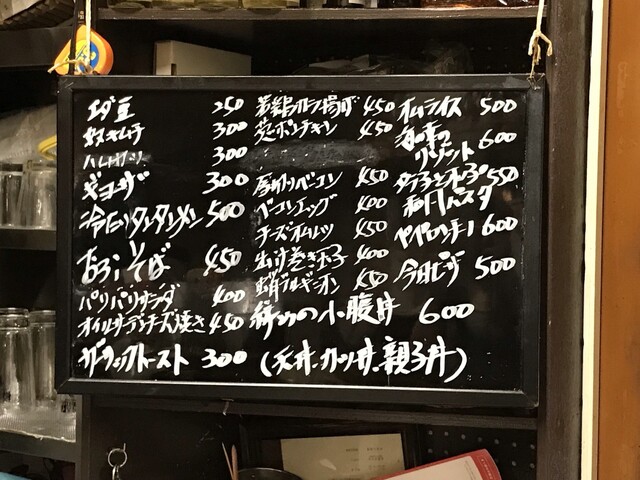 エダ豆 250
キムチ 300
300
ギョーザ 300
冷たいタンタンメン 500
おろしそば 450
パリパリサラダ 400
オイルサーデンチーズ焼き 450
ガーリックトースト 300
若鶏 揚げ 450
ポンチキン 450
厚切りベーコン 450
ベーコンエッグ 400
チーズオムレツ 450
出汁巻き玉子 400
450
の小腹丼 600
(天丼・カツ丼・親子丼)
オムライス 500
海の幸のリゾット 600
タラ子と 550
和風パスタ
ペペロンチーノ 600
今日ピザ 500